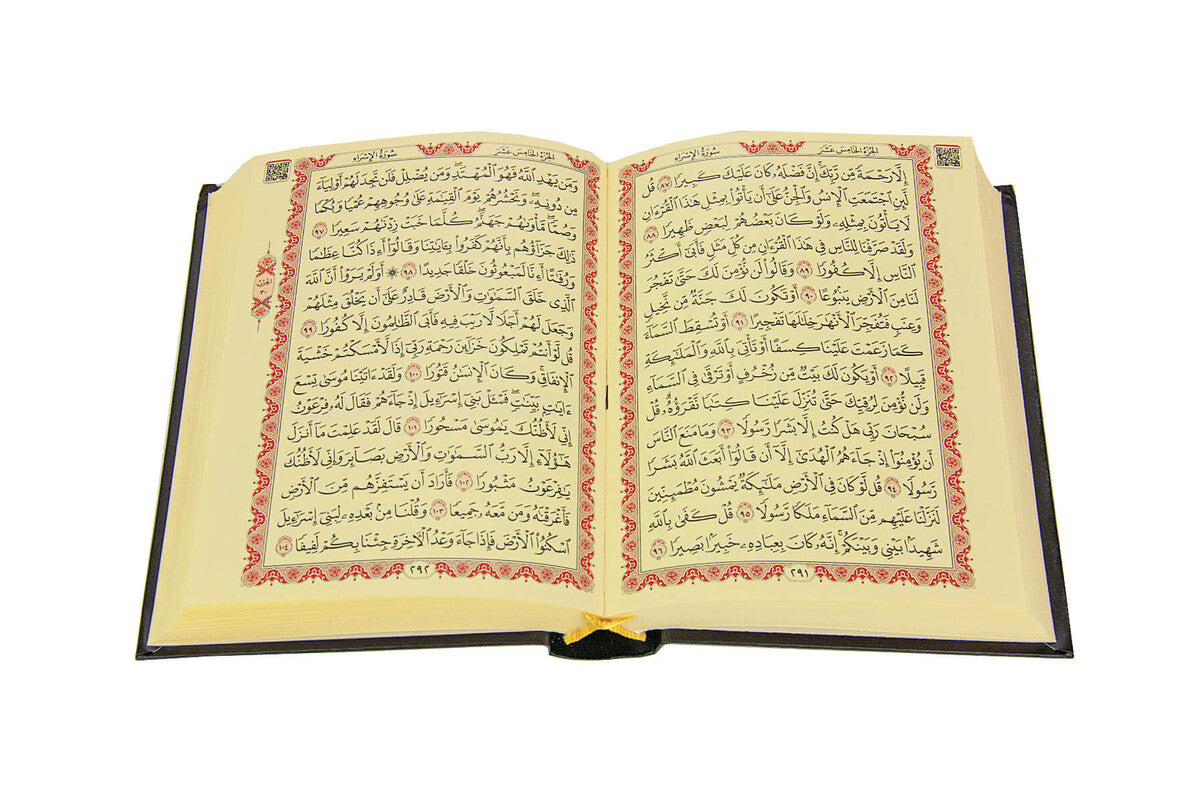 الجزء الخامس عشر
سورة الإسراء
إِلَّا رَحْمَةً مِّن رَّبِّكَ إِنَّ فَضْلَهُۥ كَانَ عَلَيْكَ كَبِيرًا ٨٧ قُل
لَّئِنِ ٱجْتَمَعَتِ ٱلْإِنسُ وَٱلْجِنُّ عَلَىٰٓ أَن يَأْتُوا۟ بِمِثْلِ هَٰذَا ٱلْقُرْءَانِ
لَا يَأْتُونَ بِمِثْلِهِۦ وَلَوْ كَانَ بَعْضُهُمْ لِبَعْضٍ ظَهِيرًا ٨٨
وَلَقَدْ صَرَّفْنَا لِلنَّاسِ فِى هَٰذَا ٱلْقُرْءَانِ مِن كُلِّ مَثَلٍ فَأَبَىٰٓ أَكْثَرُ
ٱلنَّاسِ إِلَّا كُفُورًا ٨٩ وَقَالُوا۟ لَن نُّؤْمِنَ لَكَ حَتَّىٰ تَفْجُرَ
لَنَا مِنَ ٱلْأَرْضِ يَنۢبُوعًا ٩٠ أَوْ تَكُونَ لَكَ جَنَّةٌ مِّن نَّخِيلٍ
وَعِنَبٍ فَتُفَجِّرَ ٱلْأَنْهَٰرَ خِلَٰلَهَا تَفْجِيرًا ٩١ أَوْ تُسْقِطَ ٱلسَّمَآءَ
كَمَا زَعَمْتَ عَلَيْنَا كِسَفًا أَوْ تَأْتِىَ بِٱللَّهِ وَٱلْمَلَٰٓئِكَةِ
قَبِيلًا ٩٢ أَوْ يَكُونَ لَكَ بَيْتٌ مِّن زُخْرُفٍ أَوْ تَرْقَىٰ فِى ٱلسَّمَآءِ
وَلَن نُّؤْمِنَ لِرُقِيِّكَ حَتَّىٰ تُنَزِّلَ عَلَيْنَا كِتَٰبًا نَّقْرَؤُهُۥ قُلْ
سُبْحَانَ رَبِّى هَلْ كُنتُ إِلَّا بَشَرًا رَّسُولًا ٩٣ وَمَا مَنَعَ ٱلنَّاسَ
أَن يُؤْمِنُوٓا۟ إِذْ جَآءَهُمُ ٱلْهُدَىٰٓ إِلَّآ أَن قَالُوٓا۟ أَبَعَثَ ٱللَّهُ بَشَرًا
رَّسُولًا ٩٤ قُل لَّوْ كَانَ فِى ٱلْأَرْضِ مَلَٰٓئِكَةٌ يَمْشُونَ مُطْمَئِنِّينَ
لَنَزَّلْنَا عَلَيْهِم مِّنَ ٱلسَّمَآءِ مَلَكًا رَّسُولًا ٩٥ قُلْ كَفَىٰ بِٱللَّهِ
شَهِيدًۢا بَيْنِى وَبَيْنَكُمْ إِنَّهُۥ كَانَ بِعِبَادِهِۦ خَبِيرًۢا بَصِيرًا ٩٦
٢٩١
الجزء الخامس عشر
سورة الإسراء
وَمَن يَهْدِ ٱللَّهُ فَهُوَ ٱلْمُهْتَدِ وَمَن يُضْلِلْ فَلَن تَجِدَ لَهُمْ أَوْلِيَآءَ
مِن دُونِهِۦ وَنَحْشُرُهُمْ يَوْمَ ٱلْقِيَٰمَةِ عَلَىٰ وُجُوهِهِمْ عُمْيًا وَبُكْمًا
وَصُمًّا مَّأْوَىٰهُمْ جَهَنَّمُ كُلَّمَا خَبَتْ زِدْنَٰهُمْ سَعِيرًا ٩٧
ذَٰلِكَ جَزَآؤُهُم بِأَنَّهُمْ كَفَرُوا۟ بِـَٔايَٰتِنَا وَقَالُوٓا۟ أَءِذَا كُنَّا عِظَٰمًا
وَرُفَٰتًا أَءِنَّا لَمَبْعُوثُونَ خَلْقًا جَدِيدًا ٩٨ ۞ أَوَلَمْ يَرَوْا۟ أَنَّ ٱللَّهَ
ٱلَّذِى خَلَقَ ٱلسَّمَٰوَٰتِ وَٱلْأَرْضَ قَادِرٌ عَلَىٰٓ أَن يَخْلُقَ مِثْلَهُمْ
وَجَعَلَ لَهُمْ أَجَلًا لَّا رَيْبَ فِيهِ فَأَبَى ٱلظَّٰلِمُونَ إِلَّا كُفُورًا ٩٩
قُل لَّوْ أَنتُمْ تَمْلِكُونَ خَزَآئِنَ رَحْمَةِ رَبِّىٓ إِذًا لَّأَمْسَكْتُمْ خَشْيَةَ
ٱلْإِنفَاقِ وَكَانَ ٱلْإِنسَٰنُ قَتُورًا ١٠٠ وَلَقَدْ ءَاتَيْنَا مُوسَىٰ تِسْعَ
ءَايَٰتٍۭ بَيِّنَٰتٍ فَسْـَٔلْ بَنِىٓ إِسْرَٰٓءِيلَ إِذْ جَآءَهُمْ فَقَالَ لَهُۥ فِرْعَوْنُ
إِنِّى لَأَظُنُّكَ يَٰمُوسَىٰ مَسْحُورًا ١٠١ قَالَ لَقَدْ عَلِمْتَ مَآ أَنزَلَ
هَٰٓؤُلَآءِ إِلَّا رَبُّ ٱلسَّمَٰوَٰتِ وَٱلْأَرْضِ بَصَآئِرَ وَإِنِّى لَأَظُنُّكَ
يَٰفِرْعَوْنُ مَثْبُورًا ١٠٢ فَأَرَادَ أَن يَسْتَفِزَّهُم مِّنَ ٱلْأَرْضِ
فَأَغْرَقْنَٰهُ وَمَن مَّعَهُۥ جَمِيعًا ١٠٣ وَقُلْنَا مِنۢ بَعْدِهِۦ لِبَنِىٓ إِسْرَٰٓءِيلَ
ٱسْكُنُوا۟ ٱلْأَرْضَ فَإِذَا جَآءَ وَعْدُ ٱلْءَاخِرَةِ جِئْنَا بِكُمْ لَفِيفًا ١٠٤
٢٩٢
الحزب
٣٠